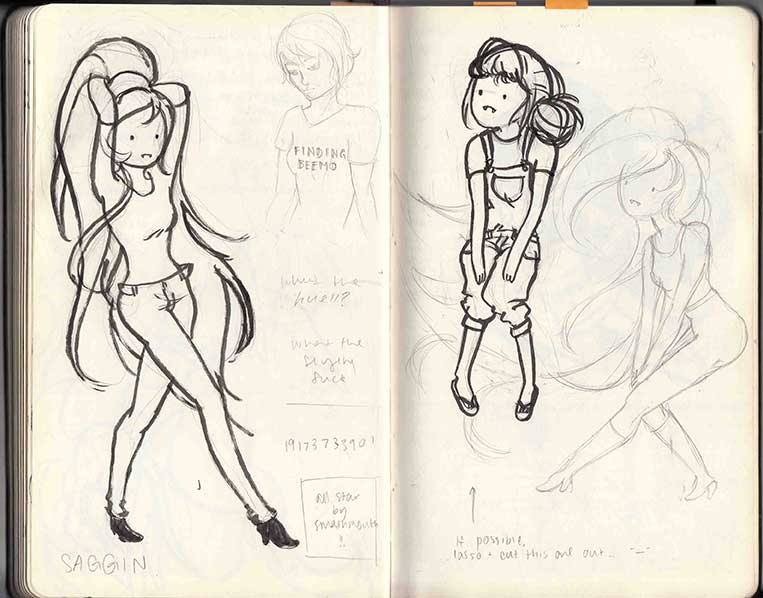 FINDING
BEEMO
what's the
huell?
what the
flying
fuck
19173733901
all star
by
smashmouth
!!
SAGGIN.
if possible,
lasso + cut this one out... -_-